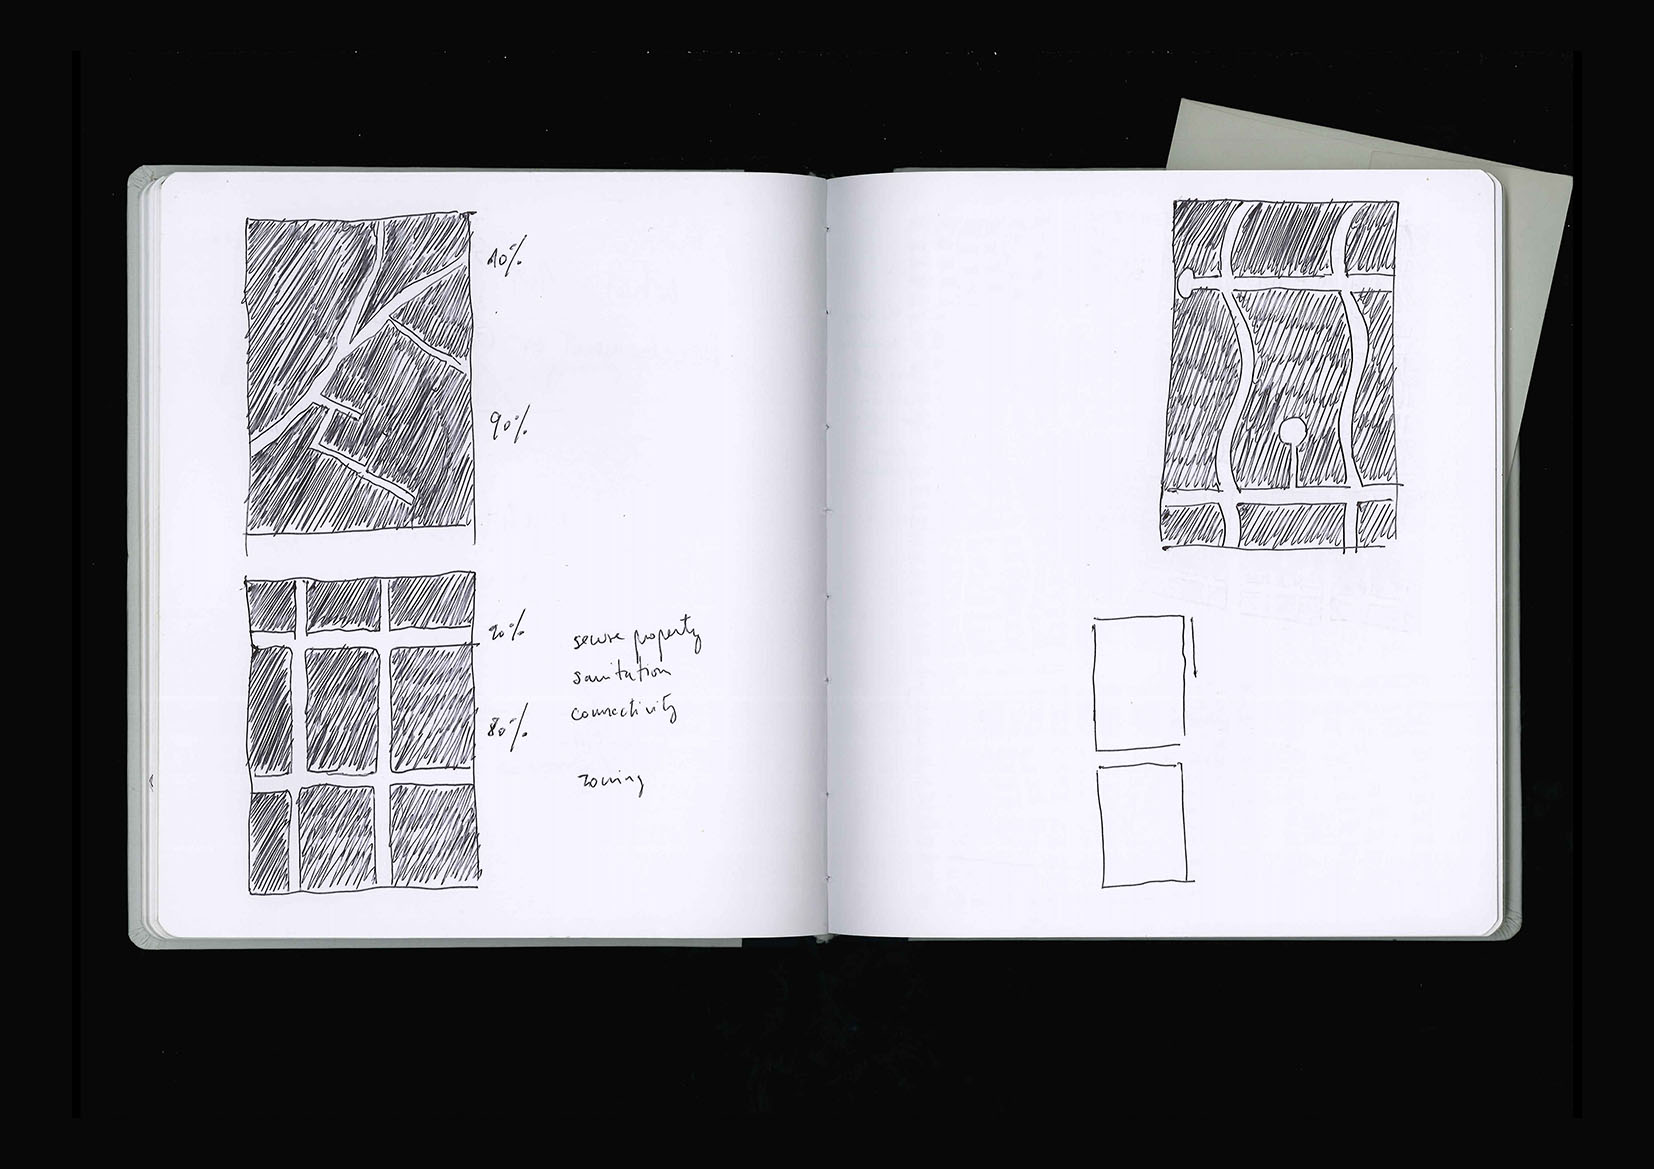 10%
90%
20%
secure property
sanitation
connectivity
80%
zoning